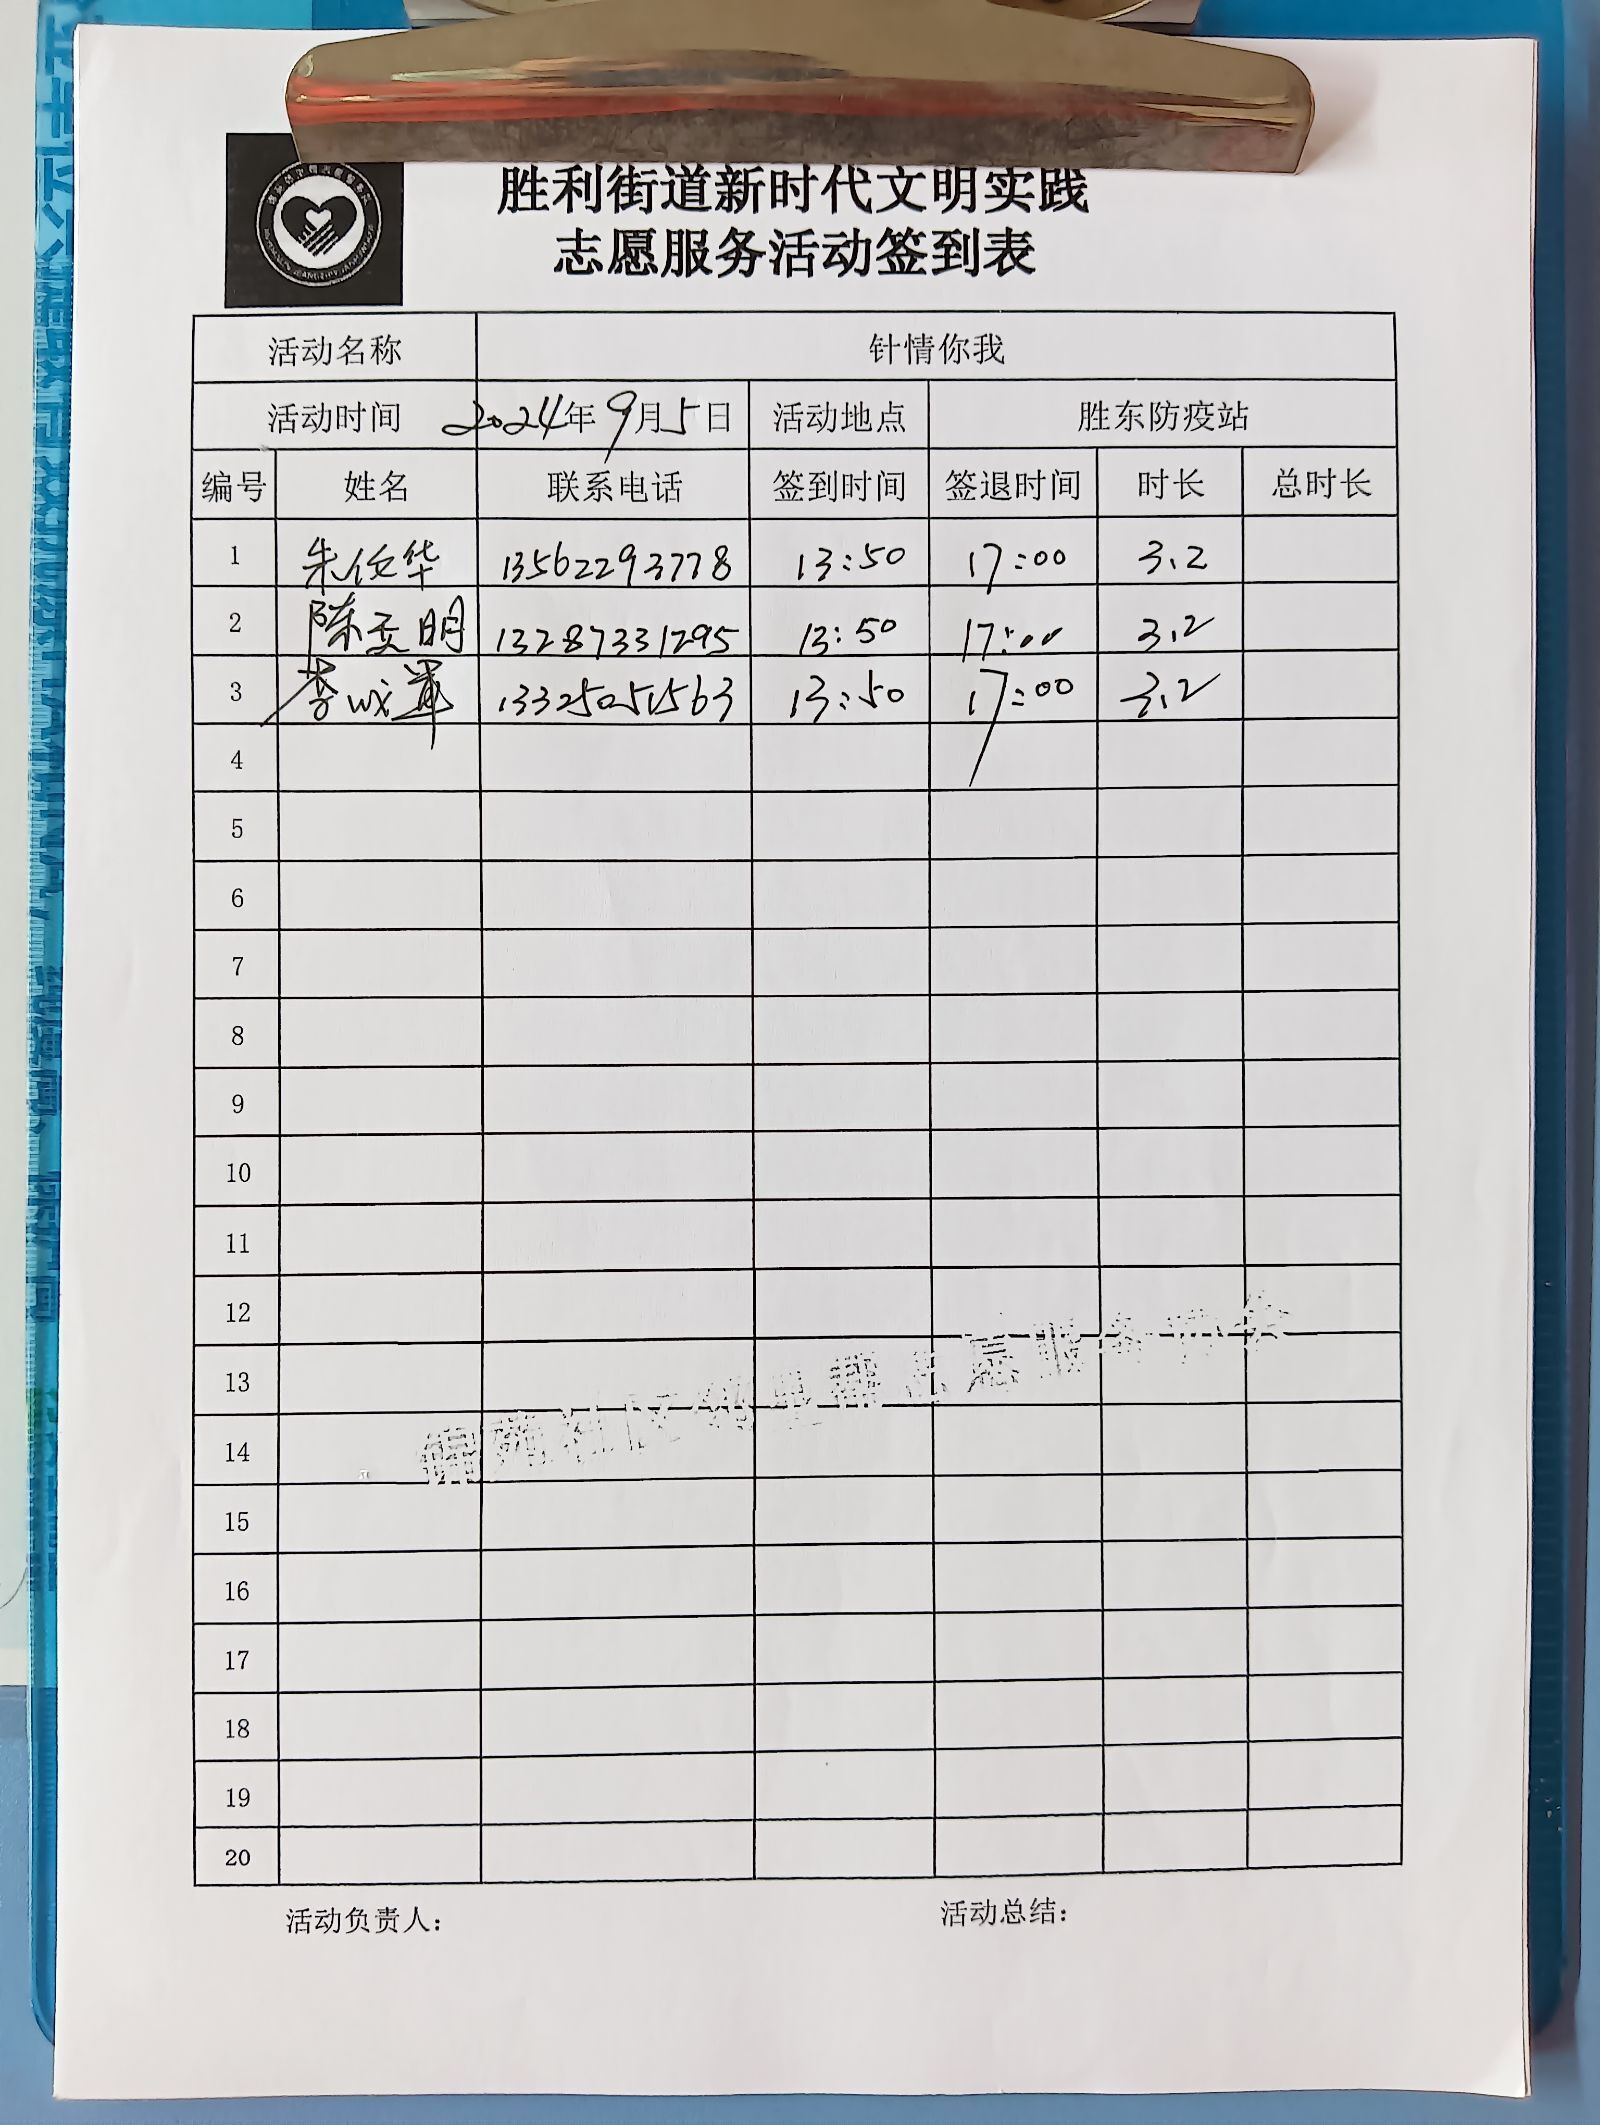 胜利街道新时代文明实践
志愿服务活动签到表
活动名称 针情你我
活动时间 2024年9月5日 活动地点 胜东防疫站
编号 姓名 联系电话 签到时间 签退时间 时长 总时长
1 朱 华 13562293778 13:50 17:00 3.2
2 陈 明 13287331295 13:50 17:00 3.2
3 李成军 13325051563 13:50 17:00 3.2
4
5
6
7
8
9
10
11
12
13
14
15
16
17
18
19
20
活动负责人： 活动总结：